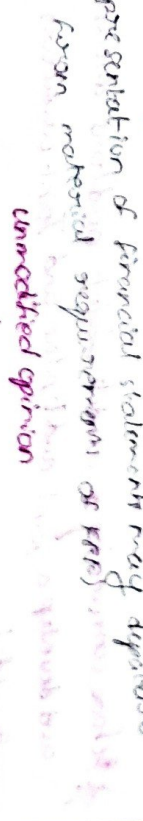 presentation of financial statements may depart
from material requirements of FRF)
unmodified opinion